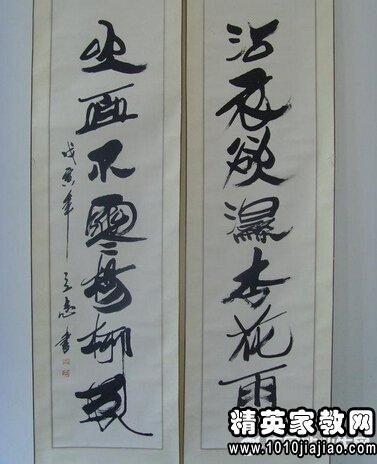 沾衣欲濕杏花雨
吹面不寒楊柳風
戊寅年
書
精英家教网
www.1010jiajiao.com